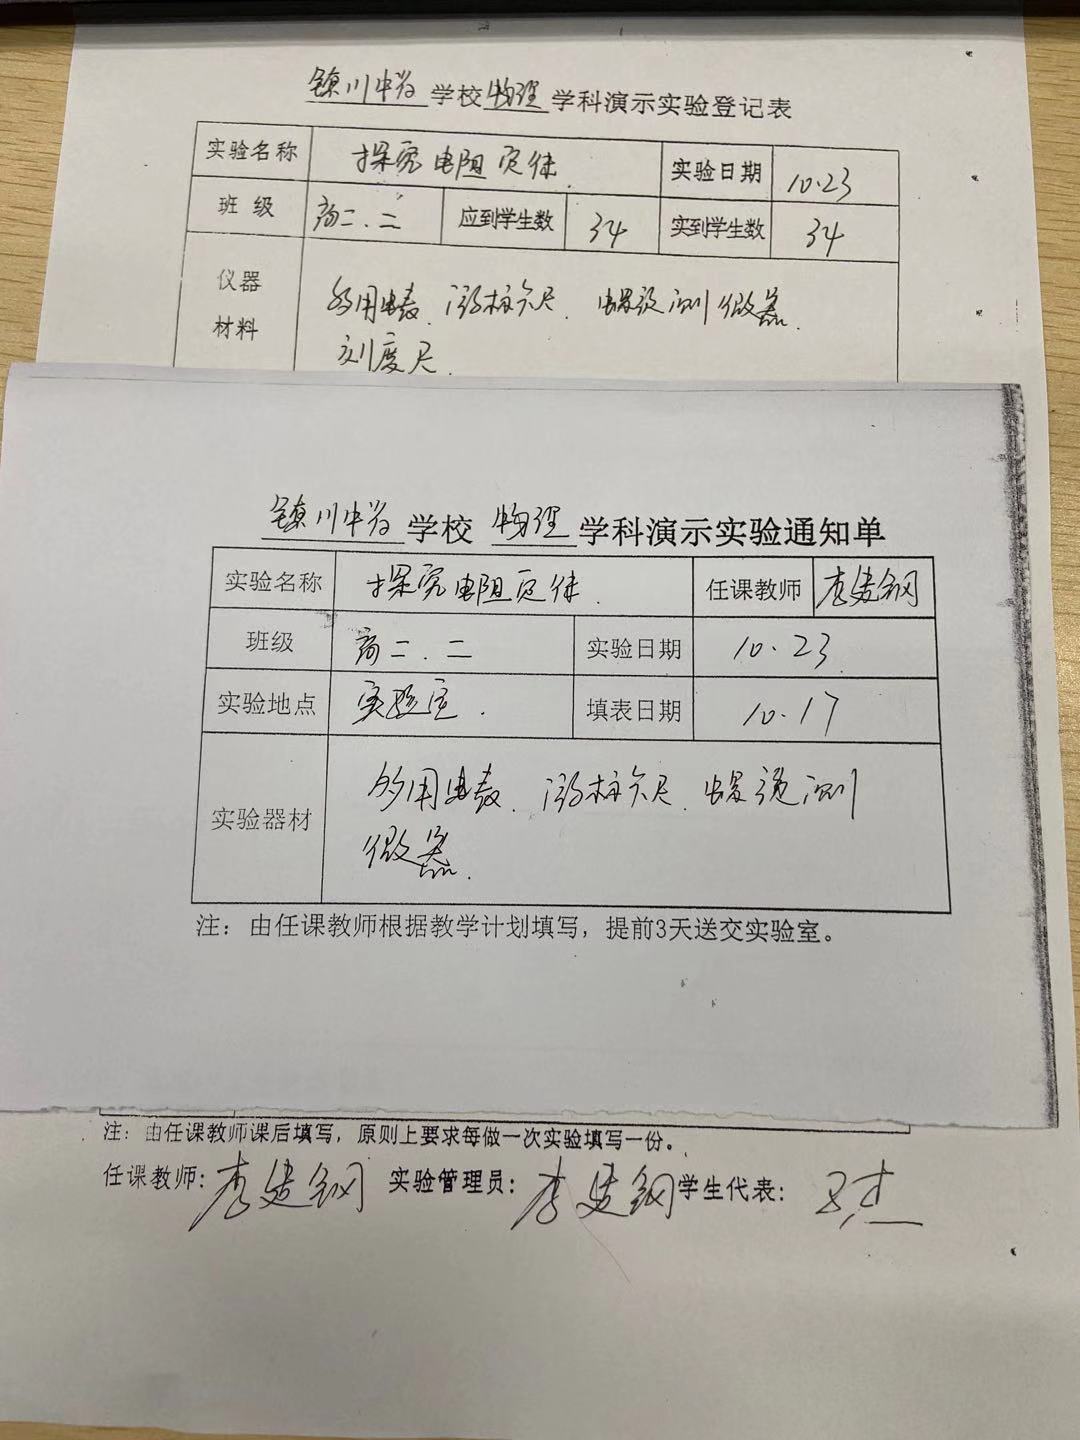 镇川中学 学校 物理 学科演示实验登记表
实验名称 探究电阻定律. 实验日期 10.23
班级 高二.二 应到学生数 34 实到学生数 34
仪器材料 多用电表. 游标卡尺. 螺旋测微器.
刻度尺.
镇川中学 学校 物理 学科演示实验通知单
实验名称 探究电阻定律. 任课教师 李建钢
班级 高二.二 实验日期 10.23.
实验地点 实验室. 填表日期 10.17
实验器材 多用电表. 游标卡尺. 螺旋测
微器.
注：由任课教师根据教学计划填写，提前3天送交实验室。
注：由任课教师课后填写，原则上要求每做一次实验填写一份。
任课教师：李建钢 实验管理员：李建钢 学生代表：